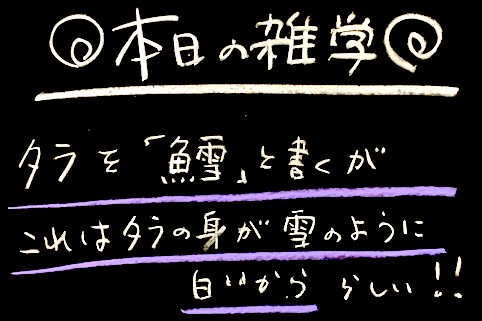 本日の雑学
タラを「鱈」と書くが
これはタラの身が雪のように
白いから らしい!!